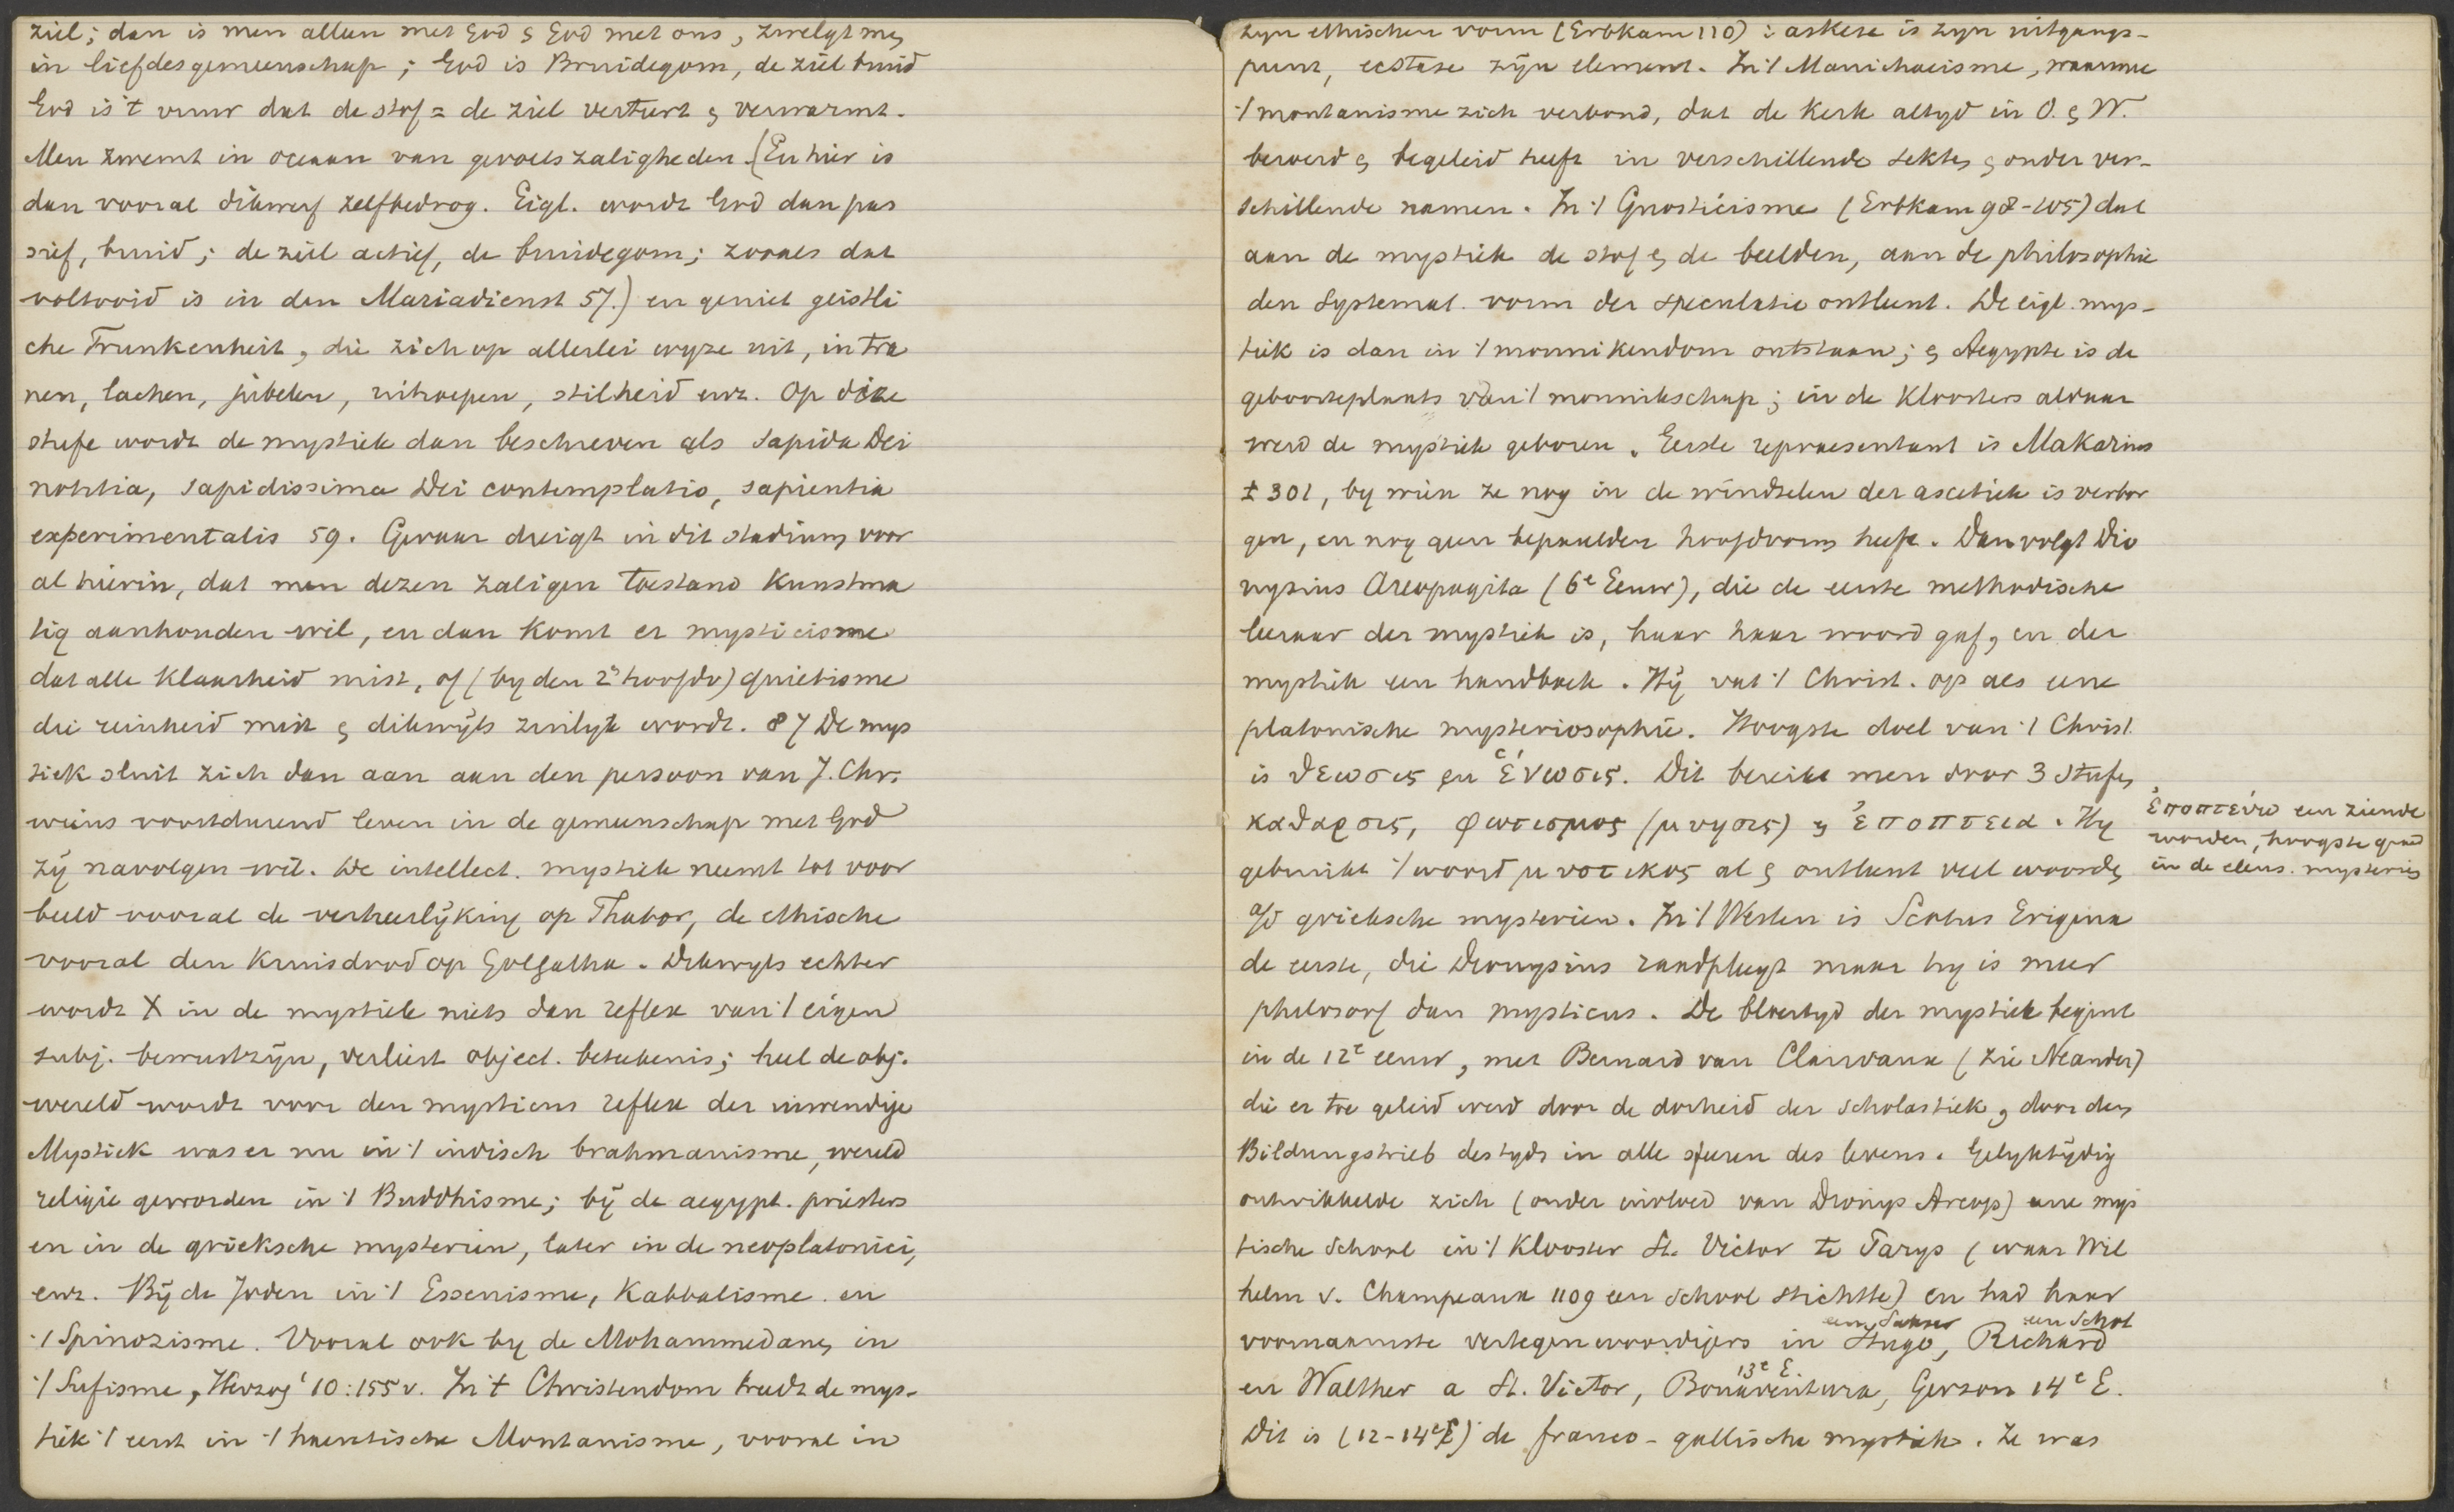 ziel; dan is men alleen met God & God met ons, zwelgt men
in liefdesgemeenschap; God is Bruidegom, de ziel bruid
God is 't vuur dat de stof = de ziel verteert & verwarmt.
Men zwemt in oceaan van gevoelszaligheden. (En hier is
dan vooral dikwerf zelfbedrog. Eigl. wordt God dan pas
sief, bruid; de ziel actief, de bruidegom; zooals dat
voltooid is in den Mariadienst 57.) en geniet geistli
che Trunkenheit, die zich op allerlei wyze uit, in tra
nen, lachen, jubelen, uitroepen, stilheid enz. Op deze
stufe wordt de mystiek dan beschreven als sapida Dei
notitia, sapidissima Dei contemplatio, sapientia
experimentalis 59. Gevaar dreigt in dit stadium voor
al hierin, dat men dezen zaligen toestand kunstma
tig aanhouden wil, en dan komt er mysticisme
dat alle klaarheid mist, of (by den 2n hoofdv) quietisme
die reinheid mist & dikwijls zinlyk wordt. 87 De mys
tiek sluit zich dan aan aan den persoon van J. Chr.
wiens voortdurend leven in de gemeenschap met God
zij navolgen wil. De intellect. mystiek neemt tot voor
beeld vooral de verheerlijking op Thabor, de ethische
vooral den Kruisdood op Golgatha. Dikwyls echter
wordt X in de mystiek niets dan reflex van 't eigen
subj. bewustzijn, verliest object. beteekenis; heel de obj.
wereld wordt voor den mysticus reflex der inwendige
Mystiek was er nu in 't indisch brahmanisme, wereld
religie geworden in 't Buddhisme; bij de aegypt. priesters
en in de grieksche mysterien, later in de neoplatonici,
enz. Bij de Joden in 't Essenisme, Kabbalisme en
't Spinozisme. Vooral ook by de Mohammedanen in
't Sufisme, Herzog¹ 10:155 v. In 't Christendom treedt de mys-
tiek 't eerst in 't haeretische Montanisme, vooral in
zyn ethischen vorm (Erbkam 110): askese is zyn uitgangs-
punt, ecstase zijn element. In 't Manichaeisme, waarmee
't montanisme zich verbond, dat de Kerk altyd in O. & W.
beroerd & begeleid heeft in verschillende sekten & onder ver-
schillende namen. In 't Gnosticisme (Erbkam 98-105) dat
aan de mystiek de stof & de beelden, aan de philosophie
den systemat. vorm der speculatie ontleent. De eigl. mys-
tiek is dan in 't monnikendom ontstaan; & Aegypte is de
geboorteplaats van 't monnikschap; in de Kloosters aldaar
werd de mystiek geboren. Eerste repraesentant is Makarius
± 301, by wien ze nog in de windselen der ascetiek is verbor
gen, en nog geen bepaalden hoofdvorm heeft. Dan volgt Dio
nysius Areopagita (6e Eeuw), die de eerste methodische
leeraar der mystiek is, haar haar woord gaf, en der
mystiek een handboek. Hij vat 't Christ. op als eene
platonische mysteriosophie. Hoogste doel van 't Christ.
is θεωσις en ἑνωσις. Dit bereikt men door 3 stufen
καθαρσις, φωτισμος (μυησις) & ἐποπτεια. Hy
ἐποπτεύω een ziende
worden, hoogste graad
in de eleus. mysteries
gebruikt 't woord μυστικος al & ontleent veel woorden
a/d grieksche mysterien. In 't Westen is Scotus Erigena
de eerste, die Dionysius raadpleegt maar hy is meer
philosoof dan mysticus. De bloeityd der mystiek begint
in de 12e eeuw, met Bernard van Clairvaux (zie Neander)
die er toe geleid werd door de dorheid der scholastiek, door den
Bildungstrieb destyds in alle sferen des levens. Gelyktijdig
ontwikkelde zich (onder invloed van Dionys Areop) eene mys
tische School in 't Klooster St. Victor te Parys (waar Wil
helm v. Champeaux 1109 een school stichtte) en had haar
voornaamste vertegenwoordigers in Hugo, een Sakser Richard een Schot
en Walther a St. Victor, Bonaventura 13e E, Gerson 14e E.
Dit is (12-14e E) de franco-gallische mystiek. Ze was